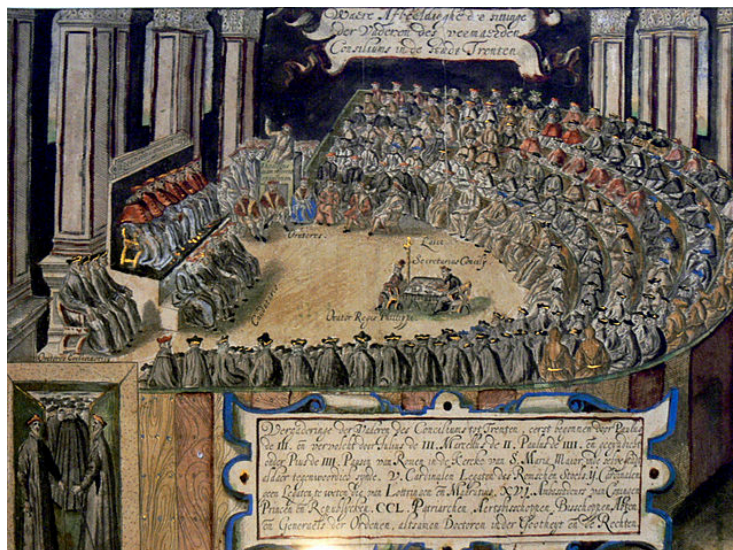 Waere Afbeeldinghe d'e sittinge
der Vaderen des vermaerden
Consiliums in de Stadt Trenten
Oratores
Laici
Secretarius Concilij
Orator Regis Philippi
Verg̃aderinge der Vaderen des Consiliums tot Trenten, eerst begonnen door Paulus
de III. en vervolcht door Julius de III. Marcellus de II. Paulus de IIII. en geeyndicht
onder Pius de IIII. Paussen van Romen in de Kercke van S. Maria Maior
aldaer tegenwoordich synde. V. Cardinalen Legaten des Romschen Stoels. ij Cardinalen
geen Legaten te weten die van Lottringen en Madrutius. XVI Ambassadeurs van Coningen
Princen en Republycken. CCL. Patriarchen, Aertsbisschoppen, Bisschoppen, Abten,
en Generaels der Ordenen, altsamen Doctoren in der Godtheyt en de Rechten.